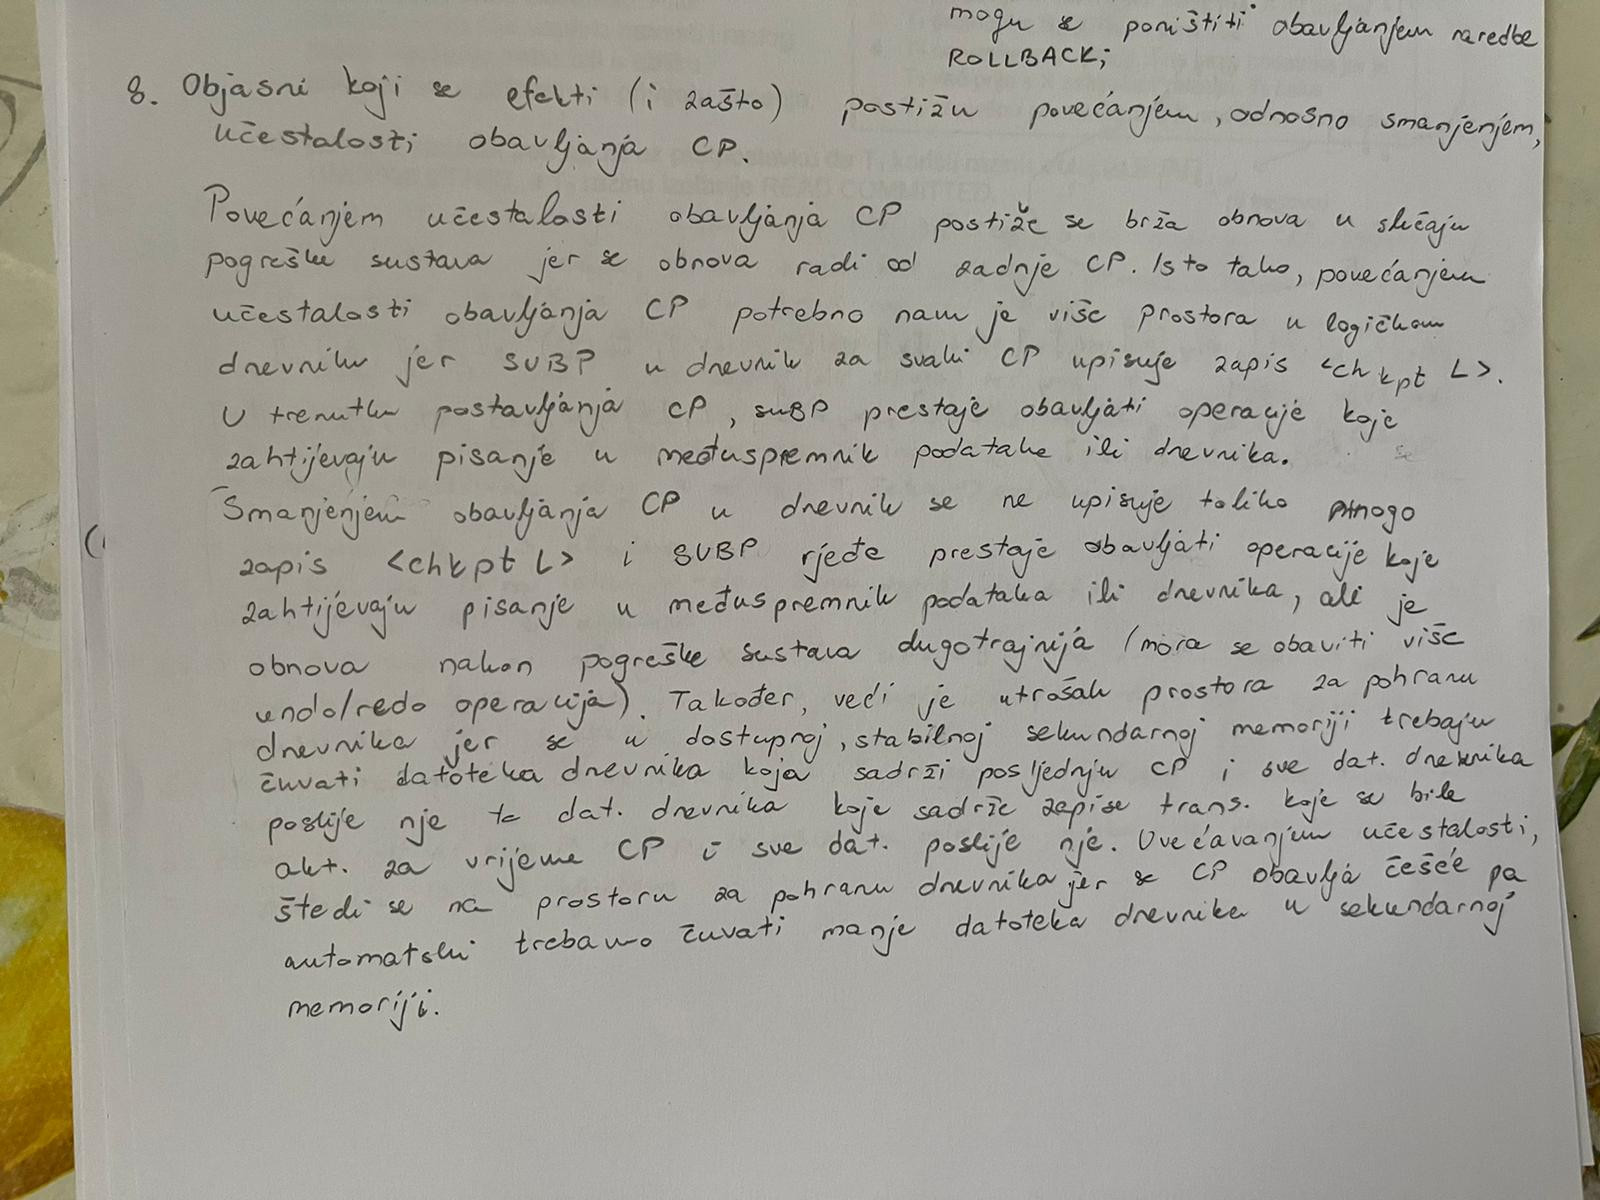 mogu se poništiti obavljanjem naredbe
ROLLBACK;
8. Objasni koji se efekti (i zašto) postižu povećanjem, odnosno smanjenjem,
učestalosti obavljanja CP.
Povećanjem učestalosti obavljanja CP postiže se brža obnova u slučaju
pogreške sustava jer se obnova radi od zadnje CP. Isto tako, povećanjem
učestalosti obavljanja CP potrebno nam je više prostora u logičkom
dnevniku jer SUBP u dnevnik za svaki CP upisuje zapis <chkpt L>.
U trenutku postavljanja CP, SUBP prestaje obavljati operacije koje
zahtijevaju pisanje u međuspremnik podataka ili dnevnika.
Smanjenjem obavljanja CP u dnevnik se ne upisuje toliko mnogo
zapis <chkpt L> i SUBP rjeđe prestaje obavljati operacije koje
zahtijevaju pisanje u međuspremnik podataka ili dnevnika, ali je
obnova nakon pogreške sustava dugotrajnija (mora se obaviti više
undo/redo operacija). Također, veći je utrošak prostora za pohranu
dnevnika jer se u dostupnoj, stabilnoj sekundarnoj memoriji trebaju
čuvati datoteka dnevnika koja sadrži posljednju CP i sve dat. dnevnika
poslije nje te dat. dnevnika koje sadrže zapise trans. koje su bile
akt. za vrijeme CP i sve dat. poslije nje. Uvećavanjem učestalosti,
štedi se na prostoru za pohranu dnevnika jer se CP obavlja češće pa
automatski trebamo čuvati manje datoteka dnevnika u sekundarnoj
memoriji.